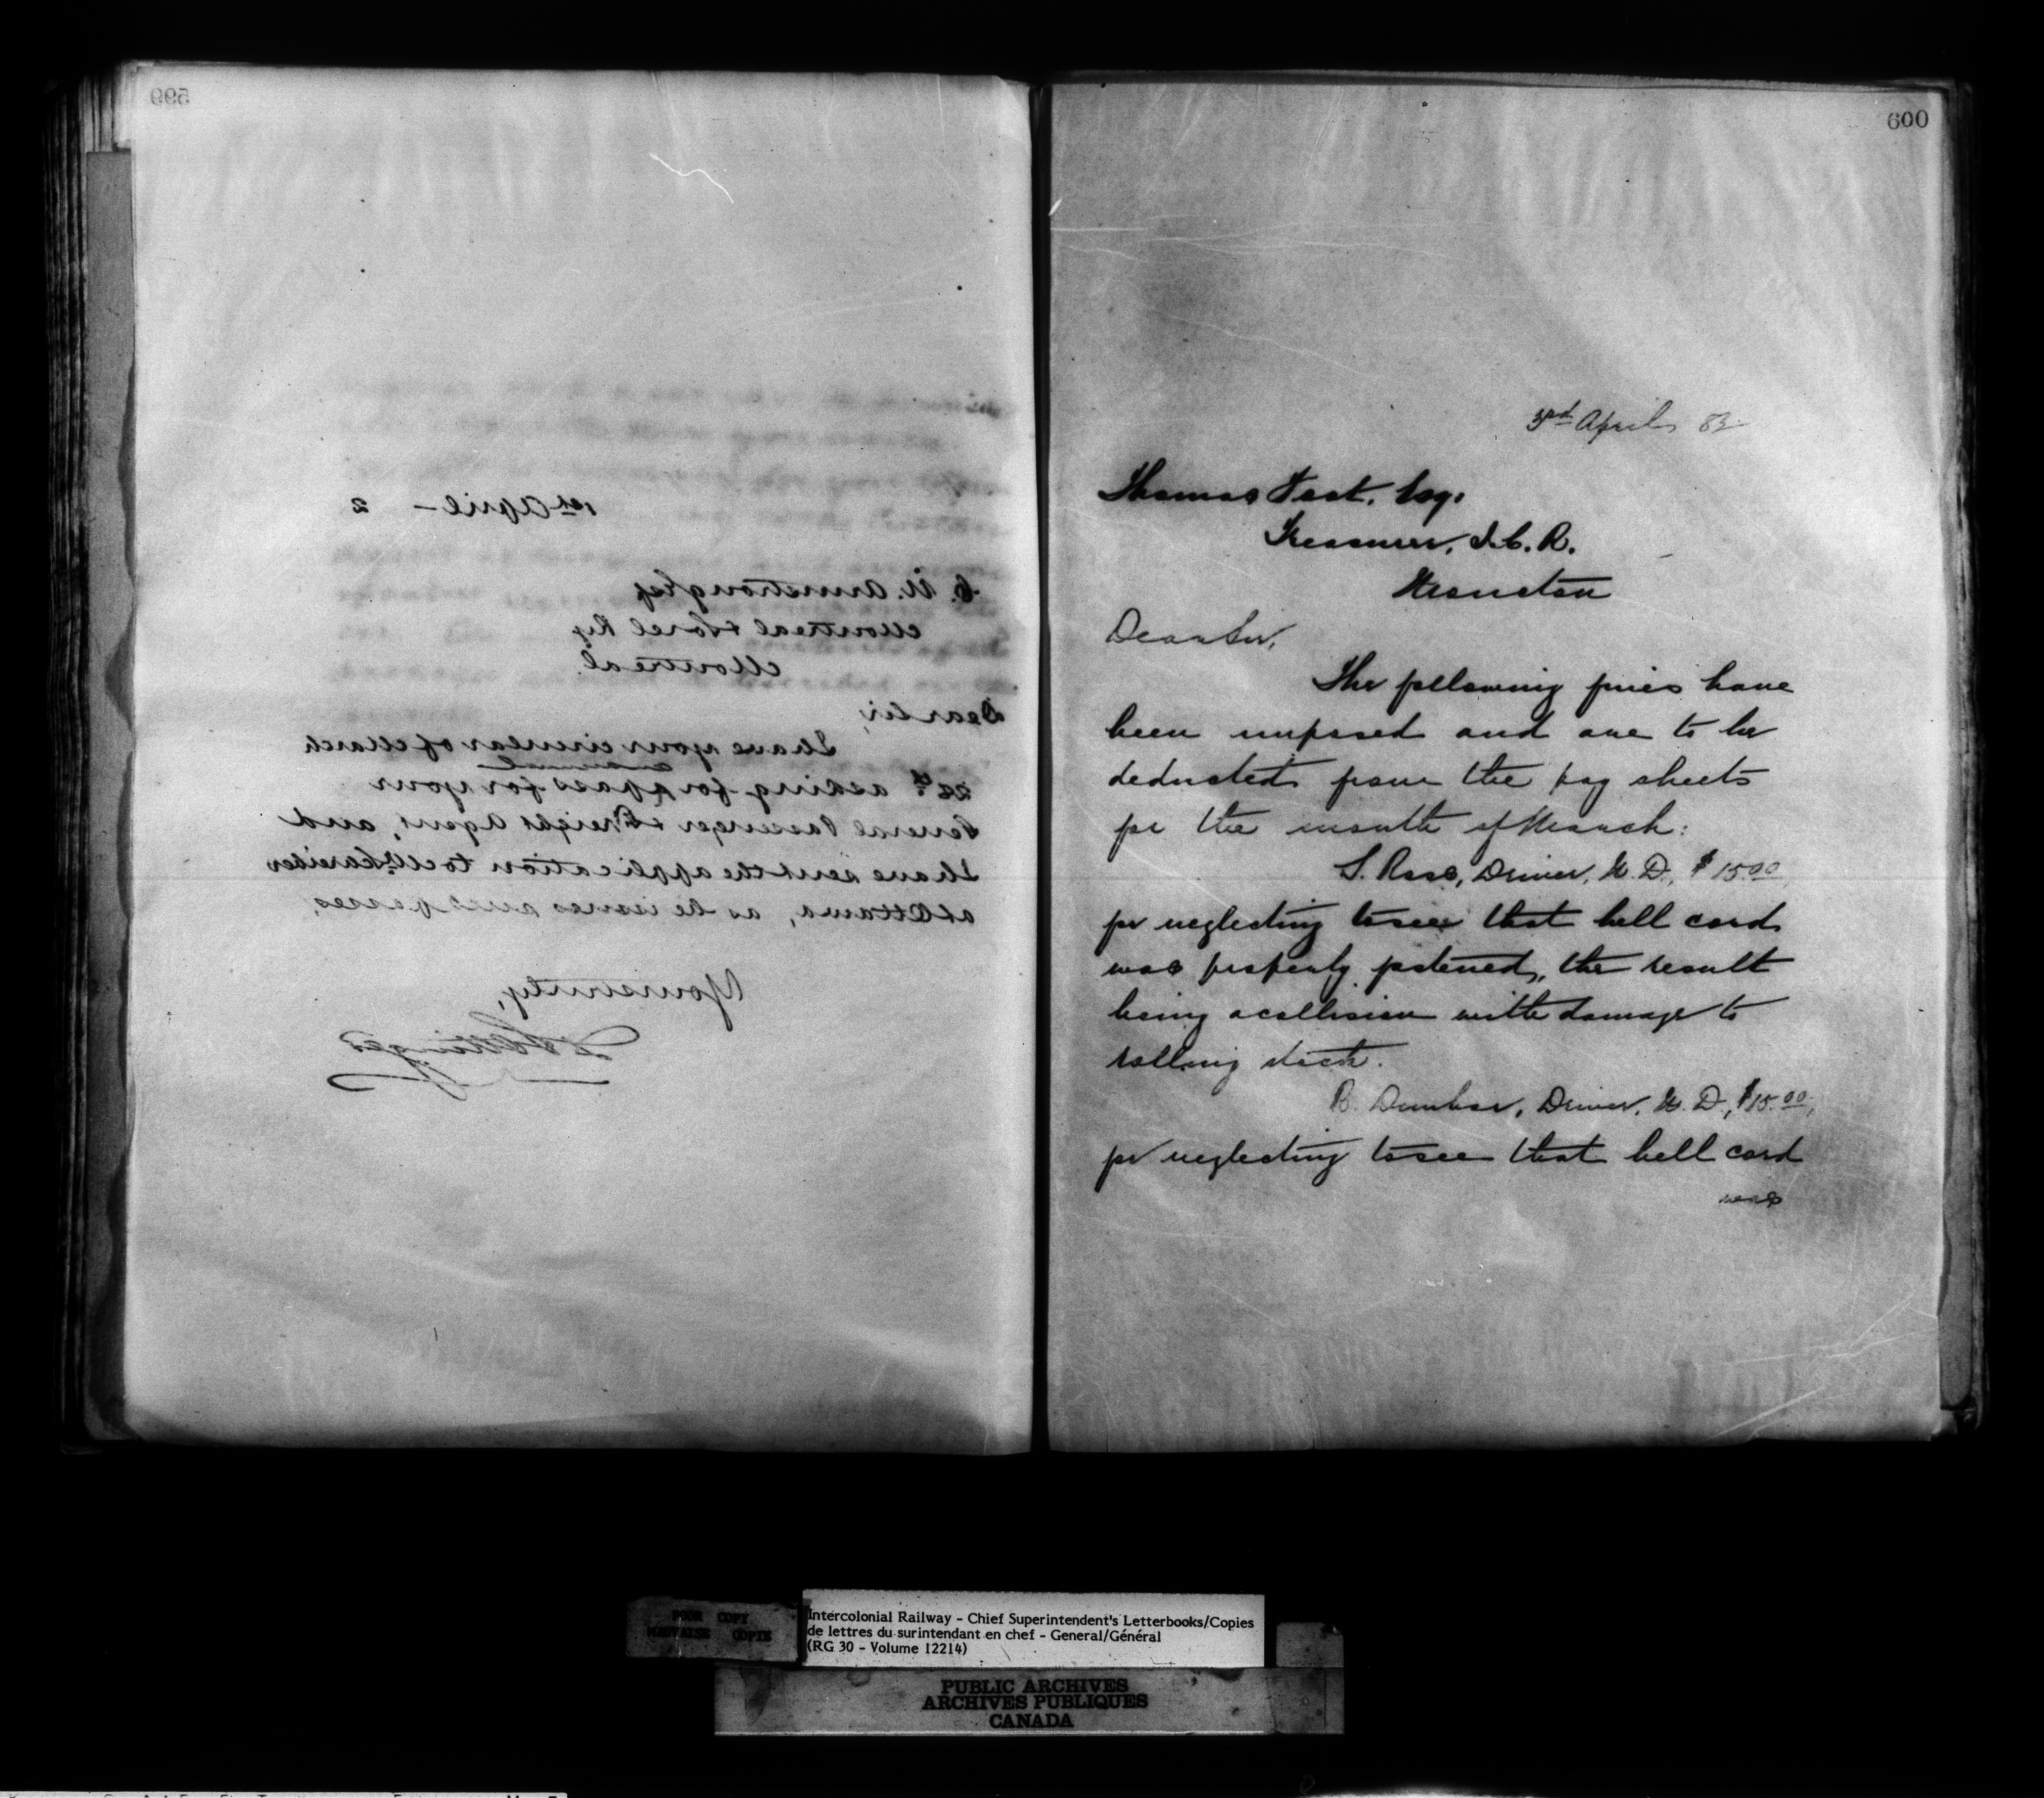 599
1st April - 2
C. N. Armstrong Esq
Montreal & Sorel Ry
Montreal.
Dear Sir,
I have your circular of March
annual
28th asking for a pass for your
General Passenger & Freight Agent, and
I have sent the application to Mr Schreiber
at Ottawa, as he issues such passes.
Yours truly,
D Pottinger
600
3rd April 82
Thomas Foot, Esq:
Treasurer, I. C. R.
Moncton
Dear Sir,
The following fines have
been imposed and are to be
deducted from the pay sheets
for the month of March:
S. Ross, Driver, H. D., $15.00
for neglecting to see that bell cord
was properly fastened, the result
being a collision with damage to
rolling stock.
B. Dunbar, Driver, H. D., $15.00,
for neglecting to see that bell cord
was
POOR COPY
MAUVAISE COPIE
Intercolonial Railway - Chief Superintendent's Letterbooks/Copies
de lettres du surintendant en chef - General/Général
(RG 30 - Volume 12214)
PUBLIC ARCHIVES
ARCHIVES PUBLIQUES
CANADA